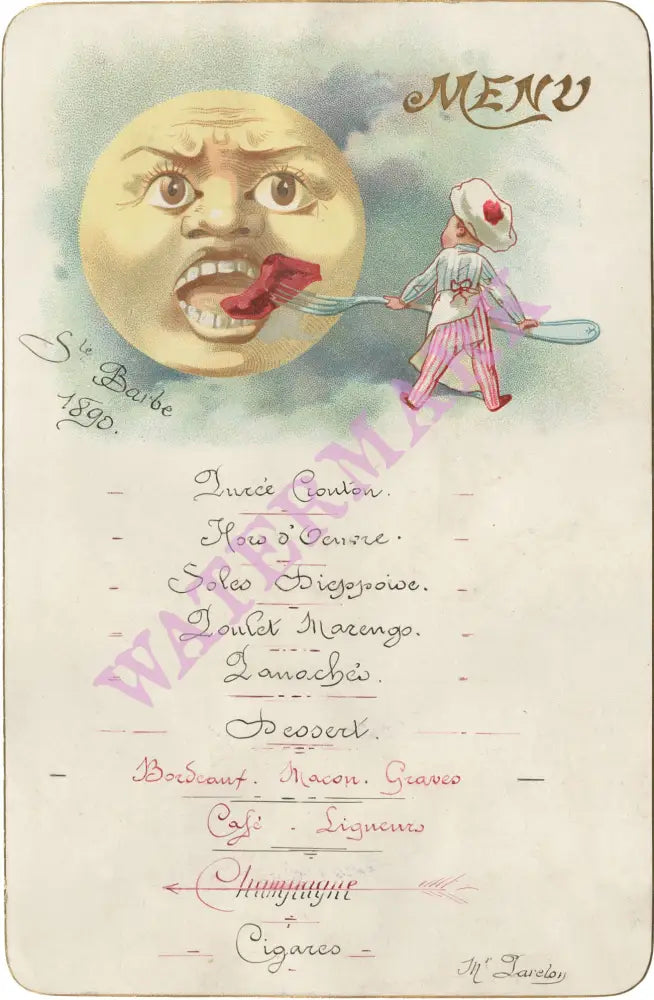 MENU
Ste Barbe
1890.
Purée Crouton.
Hors d'Oeuvre.
Soles Dieppoise.
Poulet Marengo.
Panachés.
Dessert.
Bordeaux. Macon. Graves
Café - Liqueurs
Champagne
Cigares
Mr Darelon
WATERMARK